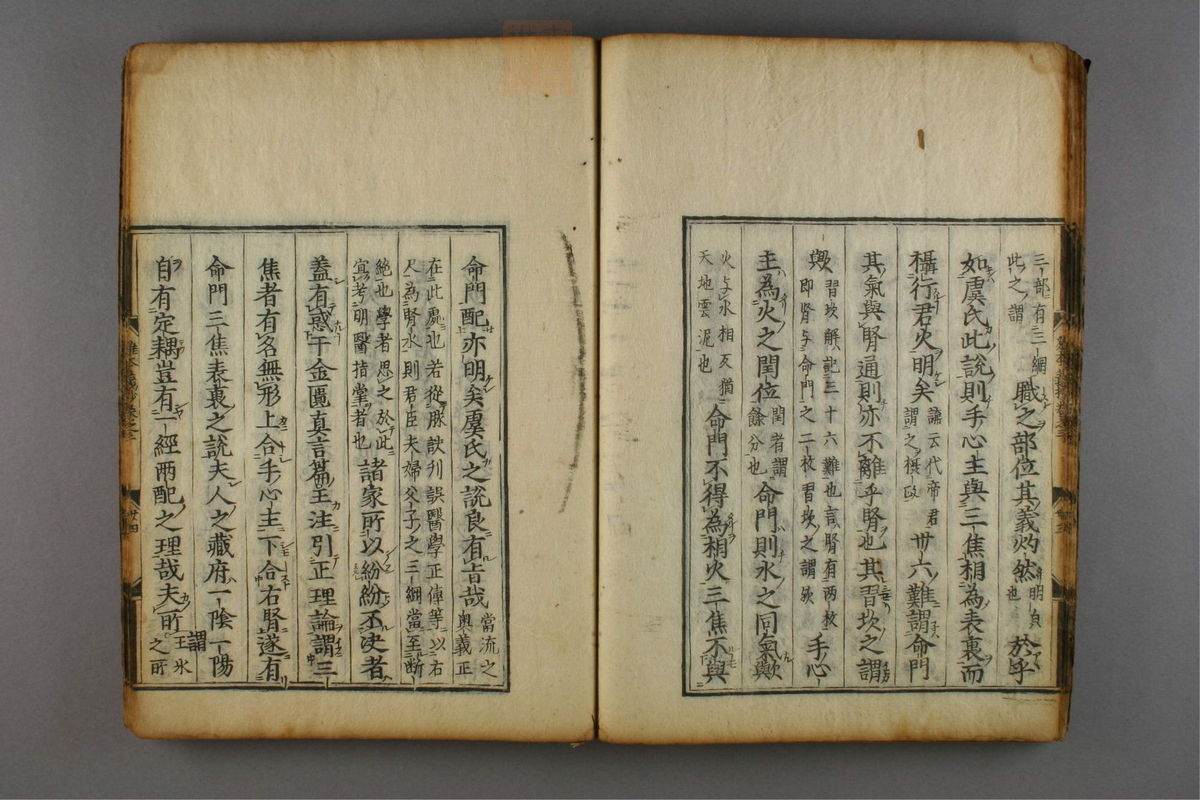 三部有三綱此之謂職之部位其義灼然明皃也於乎
如虞氏此説則手心主與三焦相為表裏而
攝行君火明矣謙云代帝君謂之攝政卅六難謂命門
其氣與腎通則亦不離乎腎也其習坎之謂
歟習坎解記三十六難也言腎有两枚即腎与命門之二枚習坎之謂歟手心
主為火之閏位閏者謂餘分也命門則水之同氣歟
火与水相反猶天地雲泥也命門不得為相火三焦不與
命門配亦明矣虞氏之説良有旨哉當流之奥義正
在此處也若從脉訣刊誤醫學正傳等以右尺為腎水則君臣夫婦父子之三綱當至断
絶也學者思之於此宜考明醫指掌者也諸家所以紛紛不决者
盖有惑于金匱真言篇王注引正理論謂三
焦者有名無形上合手心主下合右腎遂有
命門三焦表裏之説夫人之藏府一陰一陽
自有定耦豈有一經兩配之理哉夫所謂王氷之所